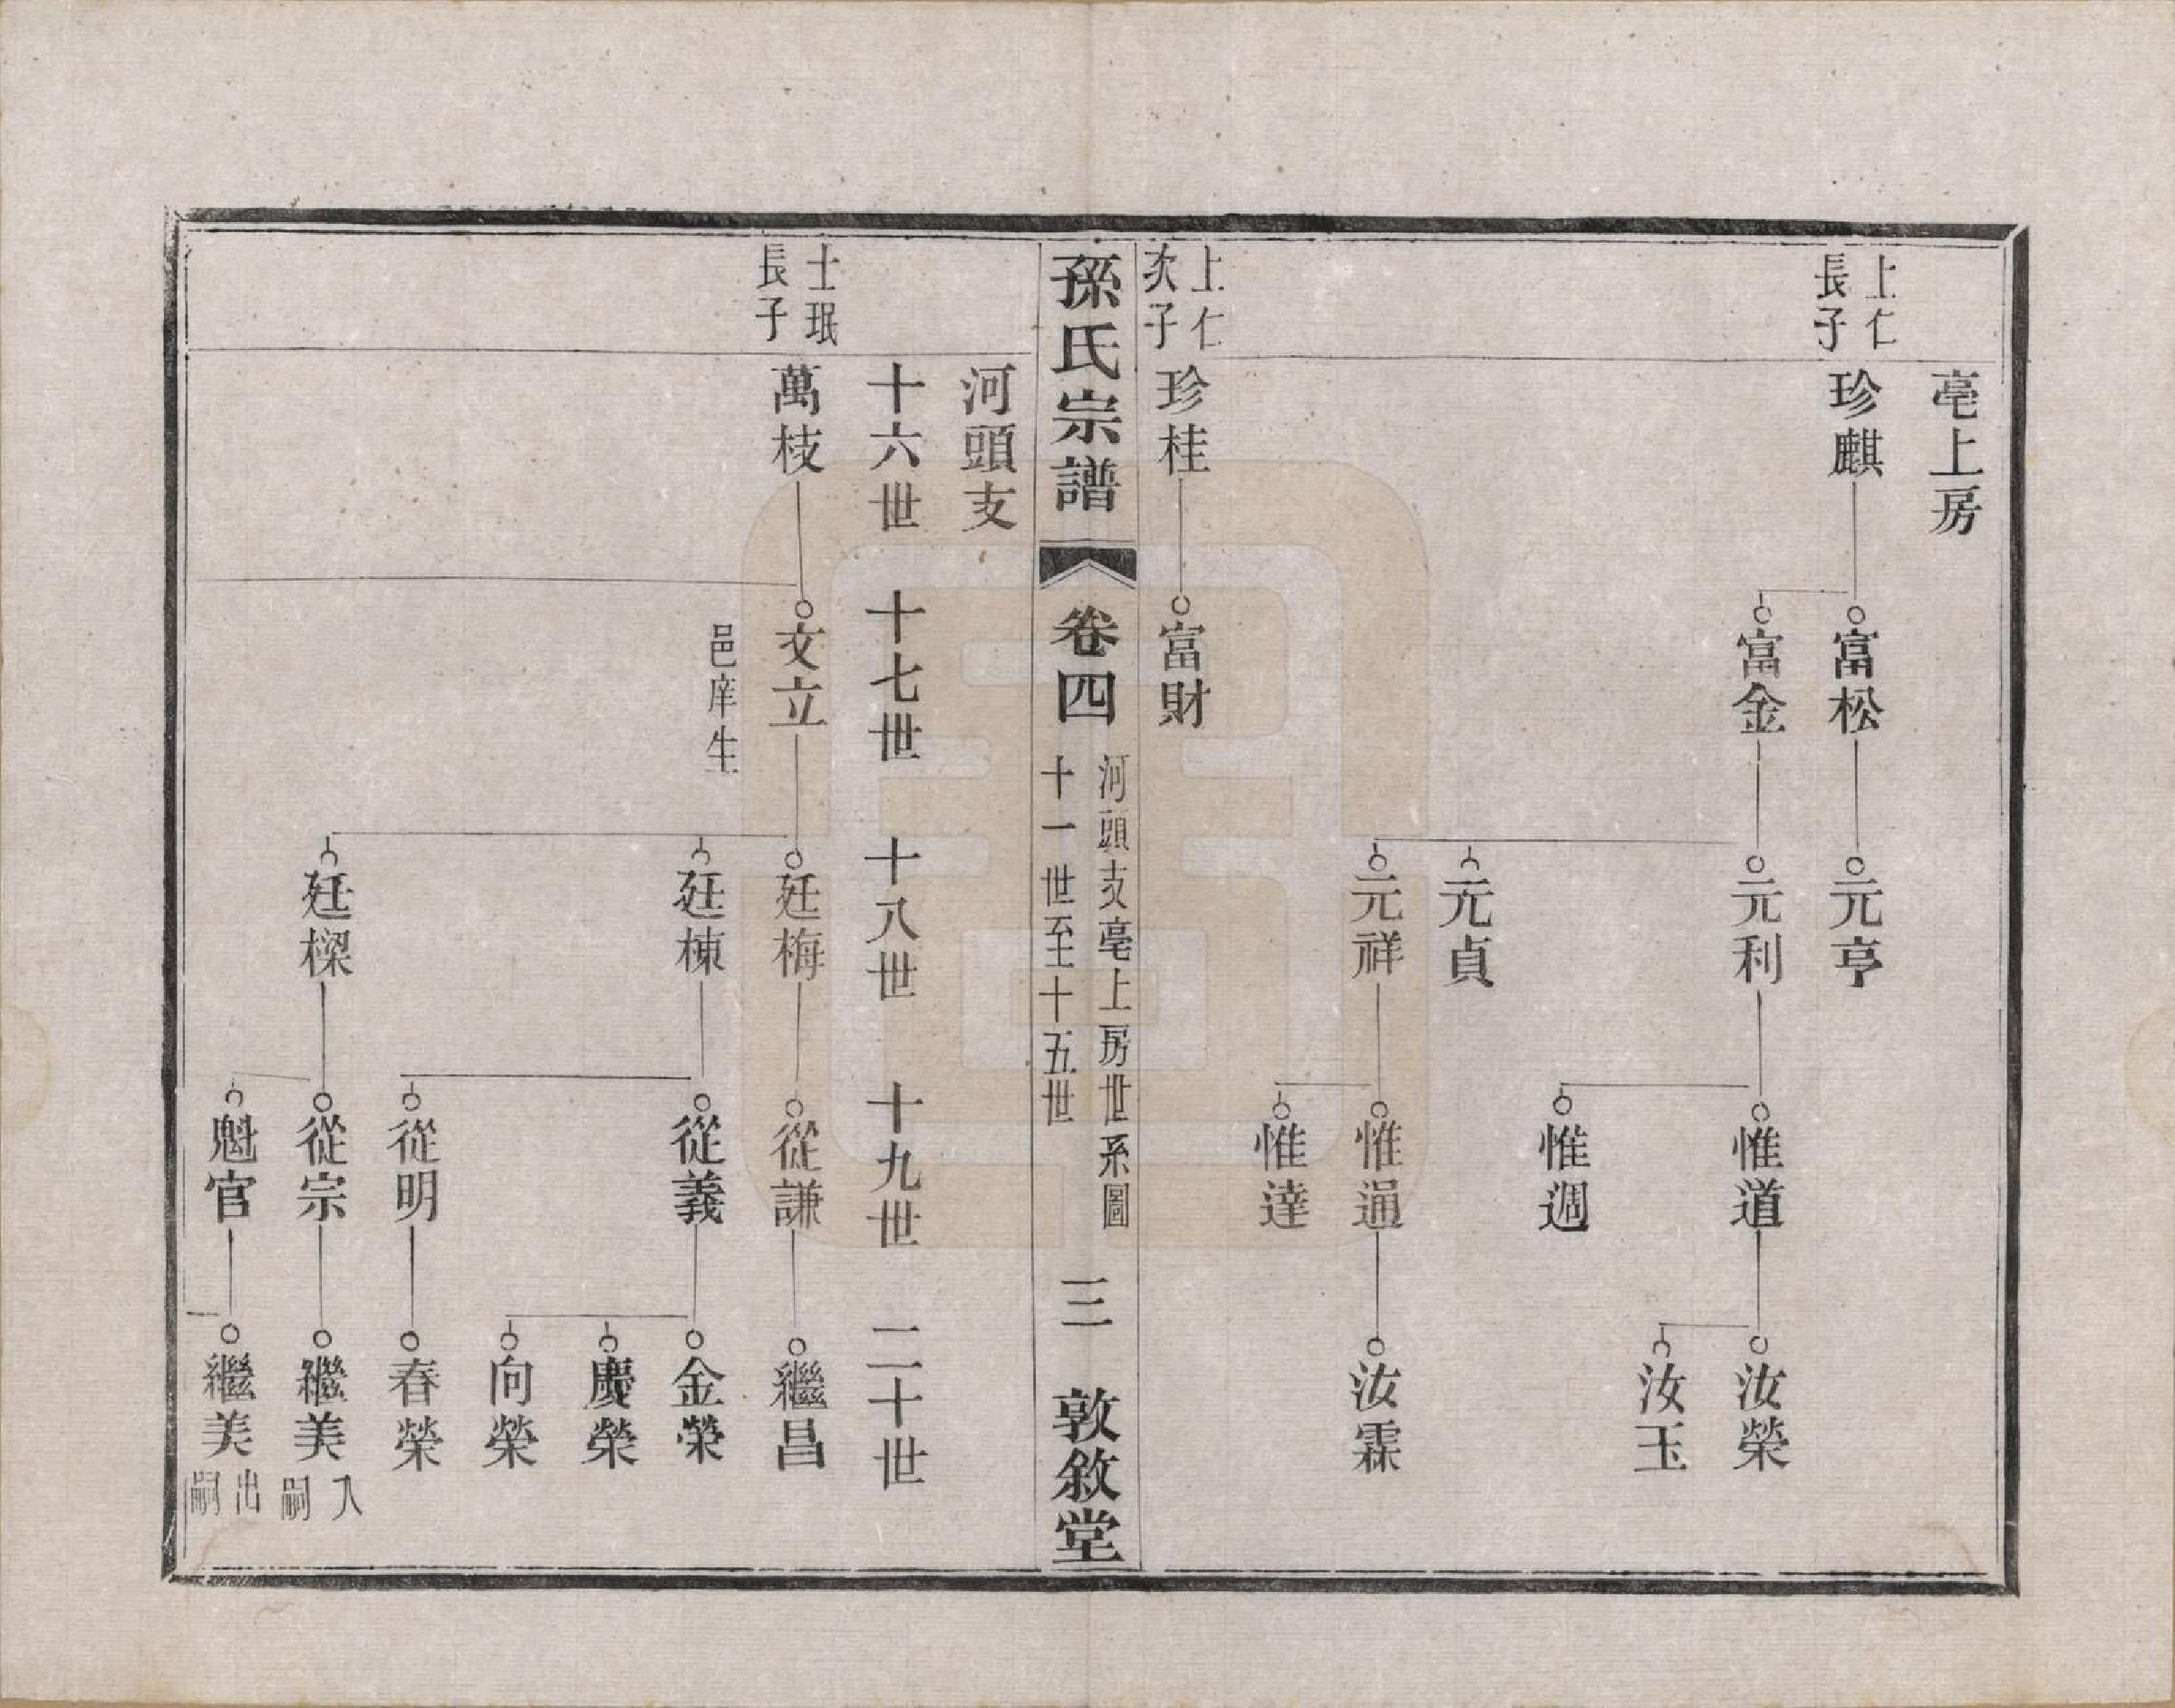 亳上房
上仁
長子
珍麒
富松
元亨
富金
元利
惟道
汝榮
汝玉
惟週
元貞
元祥
惟通
汝霖
惟達
上仁
次子
珍桂
富財
孫氏宗譜
卷四
河頭支亳上房世系圖
十一世至十五世
三
敦敘堂
河頭支
十六世
十七世
十八世
十九世
二十世
士珉
長子
萬枝
文立
邑庠生
廷梅
從謙
繼昌
廷棟
從義
金榮
慶榮
向榮
從明
春榮
廷樑
從宗
繼美
入嗣
魁官
繼美
出嗣